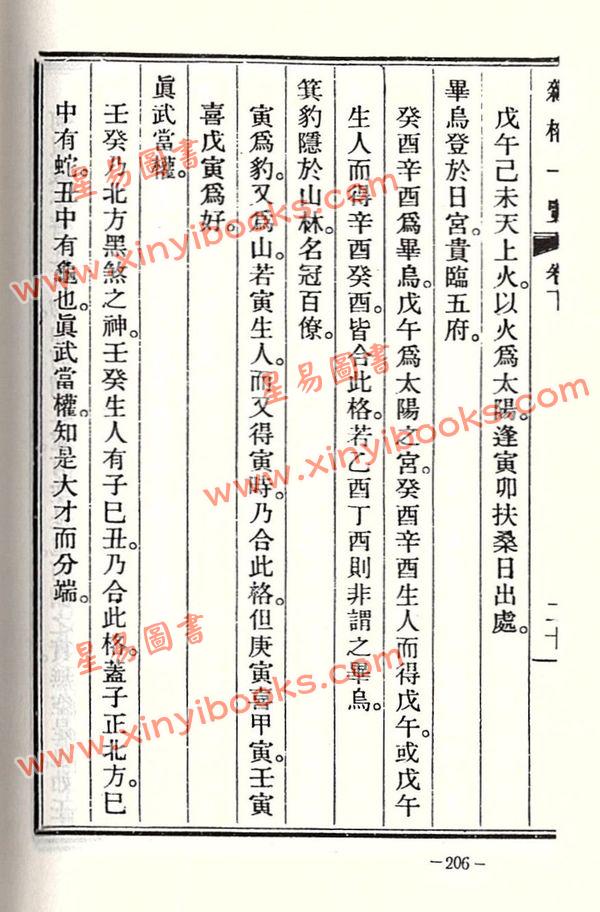 雜格一覽 卷下 二十一
戊午己未天上火。以火爲太陽。逢寅卯扶桑日出處。
畢烏登於日宮。貴臨五府。
癸酉辛酉爲畢烏。戊午爲太陽之宮。癸酉辛酉生人而得戊午。或戊午
生人而得辛酉癸酉。皆合此格。若乙酉丁酉則非謂之畢烏。
箕豹隱於山林。名冠百僚。
寅爲豹。又爲山。若寅生人。而又得寅時。乃合此格。但庚寅喜甲寅。壬寅
喜戊寅爲好。
眞武當權。
壬癸乃北方黑煞之神。壬癸生人有子巳丑。乃合此格。蓋子正北方。巳
中有蛇。丑中有龜也。眞武當權。知是大才而分端。
-206-
星易圖書
www.xinyibooks.com
星易圖書
www.xinyibooks.com
星易圖書
www.xinyibooks.com